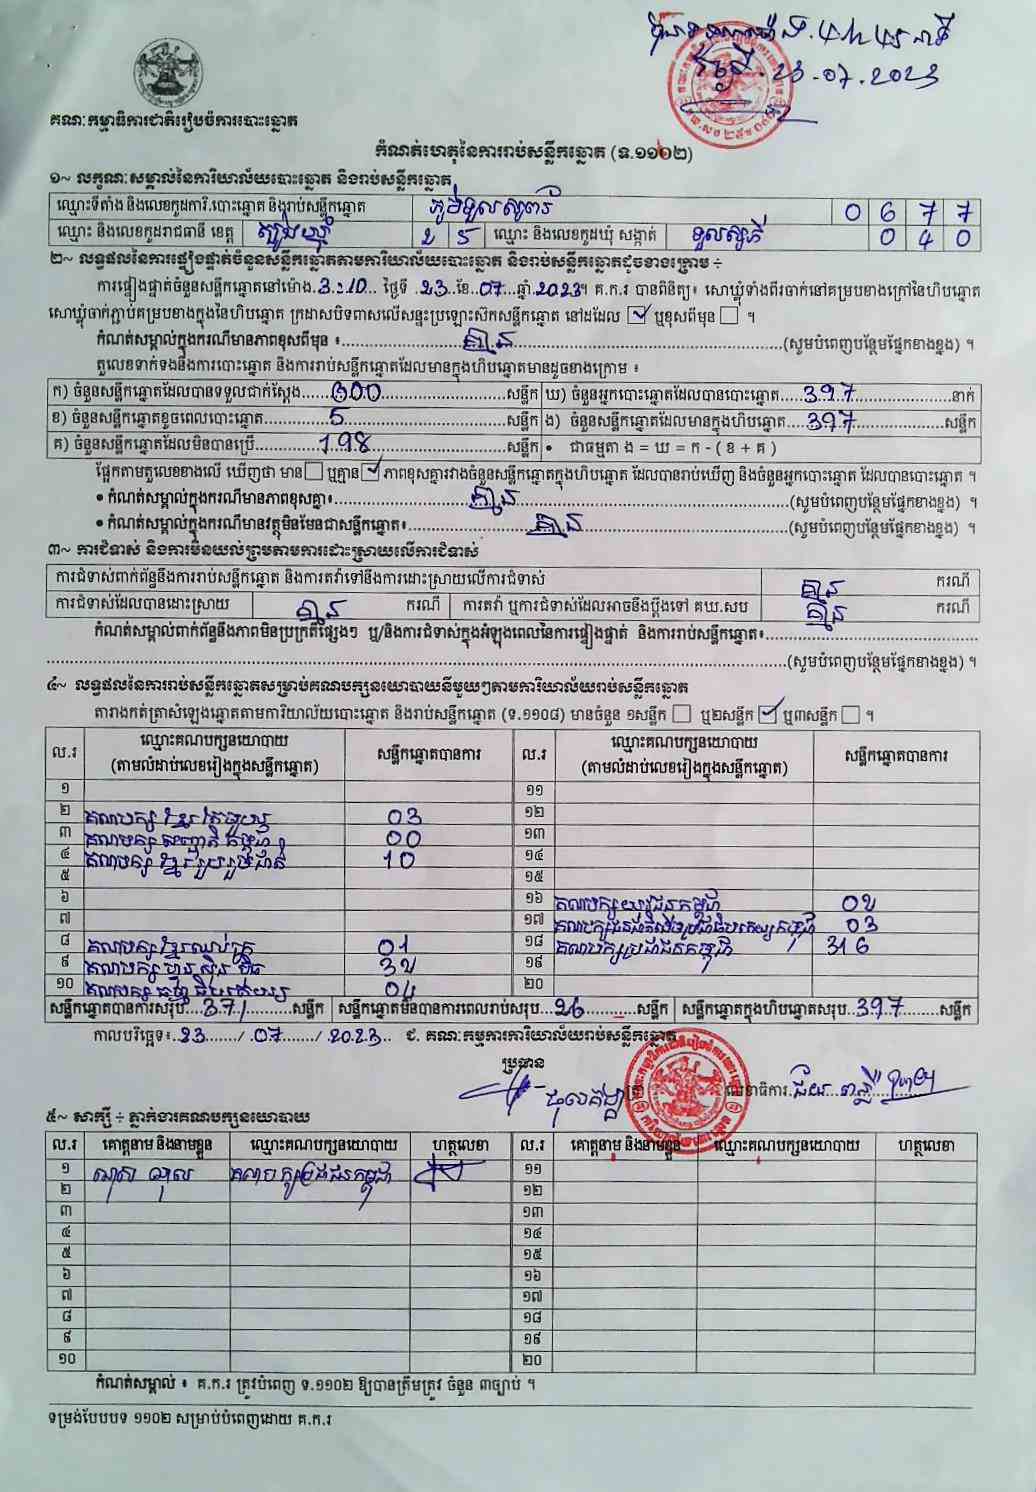 23.07.2023
គណៈកម្មាធិការជាតិរៀបចំការបោះឆ្នោត
កំណត់ហេតុនៃការរាប់សន្លឹកឆ្នោត (ទ.១១០២)
១~ លក្ខណៈសម្គាល់នៃការិយាល័យបោះឆ្នោត និងរាប់សន្លឹកឆ្នោត
ឈ្មោះទីតាំង និងលេខកូដការិ.បោះឆ្នោត និងរាប់សន្លឹកឆ្នោត 0 6 7 7
ឈ្មោះ និងលេខកូដរាជធានី ខេត្ត ត្បូងឃ្មុំ 2 5 ឈ្មោះ និងលេខកូដឃុំ សង្កាត់ ទួលសូភី 0 4 0
២~ លទ្ធផលនៃការផ្ទៀងផ្ទាត់ចំនួនសន្លឹកឆ្នោតតាមការិយាល័យបោះឆ្នោត និងរាប់សន្លឹកឆ្នោតដូចខាងក្រោម ÷
ការផ្ទៀងផ្ទាត់ចំនួនសន្លឹកឆ្នោតនៅម៉ោង.3:10.. ថ្ងៃទី .23..ខែ..07...ឆ្នាំ.2023។ គ.ក.រ បានពិនិត្យ៖ សោឃ្លុំទាំងពីរចាក់នៅគម្របខាងក្រៅនៃហិបឆ្នោត
សោឃ្លុំចាក់ភ្ជាប់គម្របខាងក្នុងនៃហិបឆ្នោត ក្រដាសបិទពាសលើសន្ទះប្រឡោះស៊ិកសន្លឹកឆ្នោត នៅដដែល ☑ ឬខុសពីមុន ☐ ។
កំណត់សម្គាល់ក្នុងករណីមានភាពខុសពីមុន ៖ គ្មាន (សូមបំពេញបន្ថែមផ្នែកខាងខ្នង) ។
តួលេខទាក់ទងនឹងការបោះឆ្នោត និងការរាប់សន្លឹកឆ្នោតដែលមានក្នុងហិបឆ្នោតមានដូចខាងក្រោម ៖
ក) ចំនួនសន្លឹកឆ្នោតដែលបានទទួលជាក់ស្តែង 600 សន្លឹក ឃ) ចំនួនអ្នកបោះឆ្នោតដែលបានបោះឆ្នោត 397 នាក់
ខ) ចំនួនសន្លឹកឆ្នោតខូចពេលបោះឆ្នោត 5 សន្លឹក ង) ចំនួនសន្លឹកឆ្នោតដែលមានក្នុងហិបឆ្នោត 397 សន្លឹក
គ) ចំនួនសន្លឹកឆ្នោតដែលមិនបានប្រើ 198 សន្លឹក • ជាធម្មតា ង = ឃ = ក - ( ខ + គ )
ផ្អែកតាមតួលេខខាងលើ ឃើញថា មាន ☐ ឬគ្មាន ☑ ភាពខុសគ្នារវាងចំនួនសន្លឹកឆ្នោតក្នុងហិបឆ្នោត ដែលបានរាប់ឃើញ និងចំនួនអ្នកបោះឆ្នោត ដែលបានបោះឆ្នោត ។
• កំណត់សម្គាល់ក្នុងករណីមានភាពខុសគ្នា៖ គ្មាន (សូមបំពេញបន្ថែមផ្នែកខាងខ្នង) ។
• កំណត់សម្គាល់ក្នុងករណីមានវត្ថុមិនមែនជាសន្លឹកឆ្នោត៖ គ្មាន (សូមបំពេញបន្ថែមផ្នែកខាងខ្នង) ។
៣~ ការជំទាស់ និងការមិនយល់ព្រមតាមការដោះស្រាយលើការជំទាស់
ការជំទាស់ពាក់ព័ន្ធនឹងការរាប់សន្លឹកឆ្នោត និងការតវ៉ាទៅនឹងការដោះស្រាយលើការជំទាស់ គ្មាន ករណី
ការជំទាស់ដែលបានដោះស្រាយ គ្មាន ករណី ការតវ៉ា ឬការជំទាស់ដែលអាចនឹងប្តឹងទៅ គឃ.សប គ្មាន ករណី
កំណត់សម្គាល់ពាក់ព័ន្ធនឹងភាពមិនប្រក្រតីផ្សេងៗ ឬ/និងការជំទាស់ក្នុងអំឡុងពេលនៃការផ្ទៀងផ្ទាត់ និងការរាប់សន្លឹកឆ្នោត៖
(សូមបំពេញបន្ថែមផ្នែកខាងខ្នង) ។
៤~ លទ្ធផលនៃការរាប់សន្លឹកឆ្នោតសម្រាប់គណបក្សនយោបាយនីមួយៗតាមការិយាល័យរាប់សន្លឹកឆ្នោត
តារាងកត់ត្រាសំឡេងឆ្នោតតាមការិយាល័យបោះឆ្នោត និងរាប់សន្លឹកឆ្នោត (ទ.១១០៨) មានចំនួន ១សន្លឹក ☐ ឬ២សន្លឹក ☑ ឬ៣សន្លឹក ☐ ។
ល.រ ឈ្មោះគណបក្សនយោបាយ (តាមលំដាប់លេខរៀងក្នុងសន្លឹកឆ្នោត) សន្លឹកឆ្នោតបានការ ល.រ ឈ្មោះគណបក្សនយោបាយ (តាមលំដាប់លេខរៀងក្នុងសន្លឹកឆ្នោត) សន្លឹកឆ្នោតបានការ
១ ១១
២ គណបក្ស ខ្មែរ 03 ១២
៣ គណបក្ស សញ្ជាតិ កម្ពុជា 00 ១៣
៤ គណបក្ស ខ្មែររួបរួមជាតិ 10 ១៤
៥ ១៥
៦ ១៦ គណបក្សយុវជនកម្ពុជា 02
៧ ១៧ គណបក្ស 03
៨ គណបក្ស ខ្មែរ 01 ១៨ គណបក្សប្រជាជនកម្ពុជា 316
៩ គណបក្ស ហ្វ៊ុនស៊ិនប៉ិច 32 ១៩
១០ គណបក្ស 04 ២០
សន្លឹកឆ្នោតបានការសរុប 371 សន្លឹក សន្លឹកឆ្នោតមិនបានការពេលរាប់សរុប 26 សន្លឹក សន្លឹកឆ្នោតក្នុងហិបឆ្នោតសរុប 397 សន្លឹក
កាលបរិច្ឆេទ៖ 23 / 07 / 2023 ជ. គណៈកម្មការការិយាល័យរាប់សន្លឹកឆ្នោត
ប្រធាន
លេខាធិការ
៥~ សាក្សី ÷ ភ្នាក់ងារគណបក្សនយោបាយ
ល.រ គោត្តនាម និងនាមខ្លួន ឈ្មោះគណបក្សនយោបាយ ហត្ថលេខា ល.រ គោត្តនាម និងនាមខ្លួន ឈ្មោះគណបក្សនយោបាយ ហត្ថលេខា
១ គណបក្សប្រជាជនកម្ពុជា ១១
២ ១២
៣ ១៣
៤ ១៤
៥ ១៥
៦ ១៦
៧ ១៧
៨ ១៨
៩ ១៩
១០ ២០
កំណត់សម្គាល់ ៖ គ.ក.រ ត្រូវបំពេញ ទ.១១០២ ឱ្យបានត្រឹមត្រូវ ចំនួន ៣ច្បាប់ ។
ទម្រង់បែបបទ ១១០២ សម្រាប់បំពេញដោយ គ.ក.រ